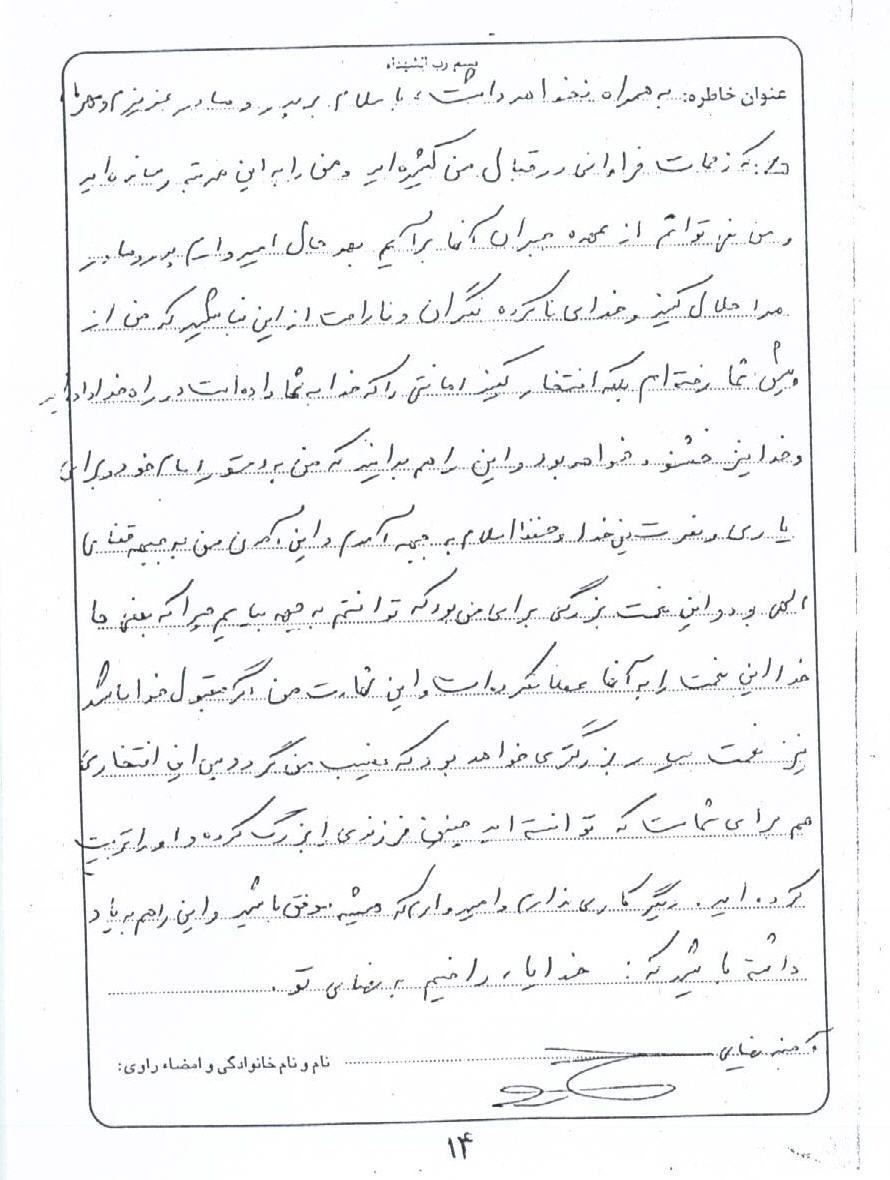 بسم رب الشهداء
عنوان خاطره: به همراه نخواهد داشت، با سلام بر پدر و مادر عزیزم و
که زحمات فراوانی در قبال من کشیده اید و من را به این مرتبه رسانده اید
و من نمی توانم از عهده جبران آنها برآیم بهر حال امیدوارم پدر و مادر
مرا حلال کنید و خدای ناکرده نگران و ناراحت از این نباشید که من از
پیش شما رفته ام بلکه افتخار کنید امانتی را که خدا به شما داده است در راه خدا داده اید
و خدا نیز خشنود خواهد بود و این را هم بدانید که من به دستور امام خود و برای
یاری و نصرت دین خدا و حفظ اسلام به جبهه آمدم و این آمدن من به جبهه قضای
الهی بود و این نعمت بزرگی برای من بود که توانستم به جبهه بیایم چرا که بعضی ها
خدا این نعمت را به آنها عطا نکرده است و این شهادت من اگر مقبول خدا باشد
نیز نعمت بسیار بزرگتری خواهد بود که نصیب من گردد و این افتخاری
هم برای شماست که توانسته اید چنین فرزندی را بزرگ کرده و او را تربیت
کرده اید. دیگر کاری ندارم و امیدوارم که همیشه موفق باشید و این را هم به یاد
داشته باشید که: خدایا، راضیم به رضای تو.
نام و نام خانوادگی و امضاء راوی:
۱۴